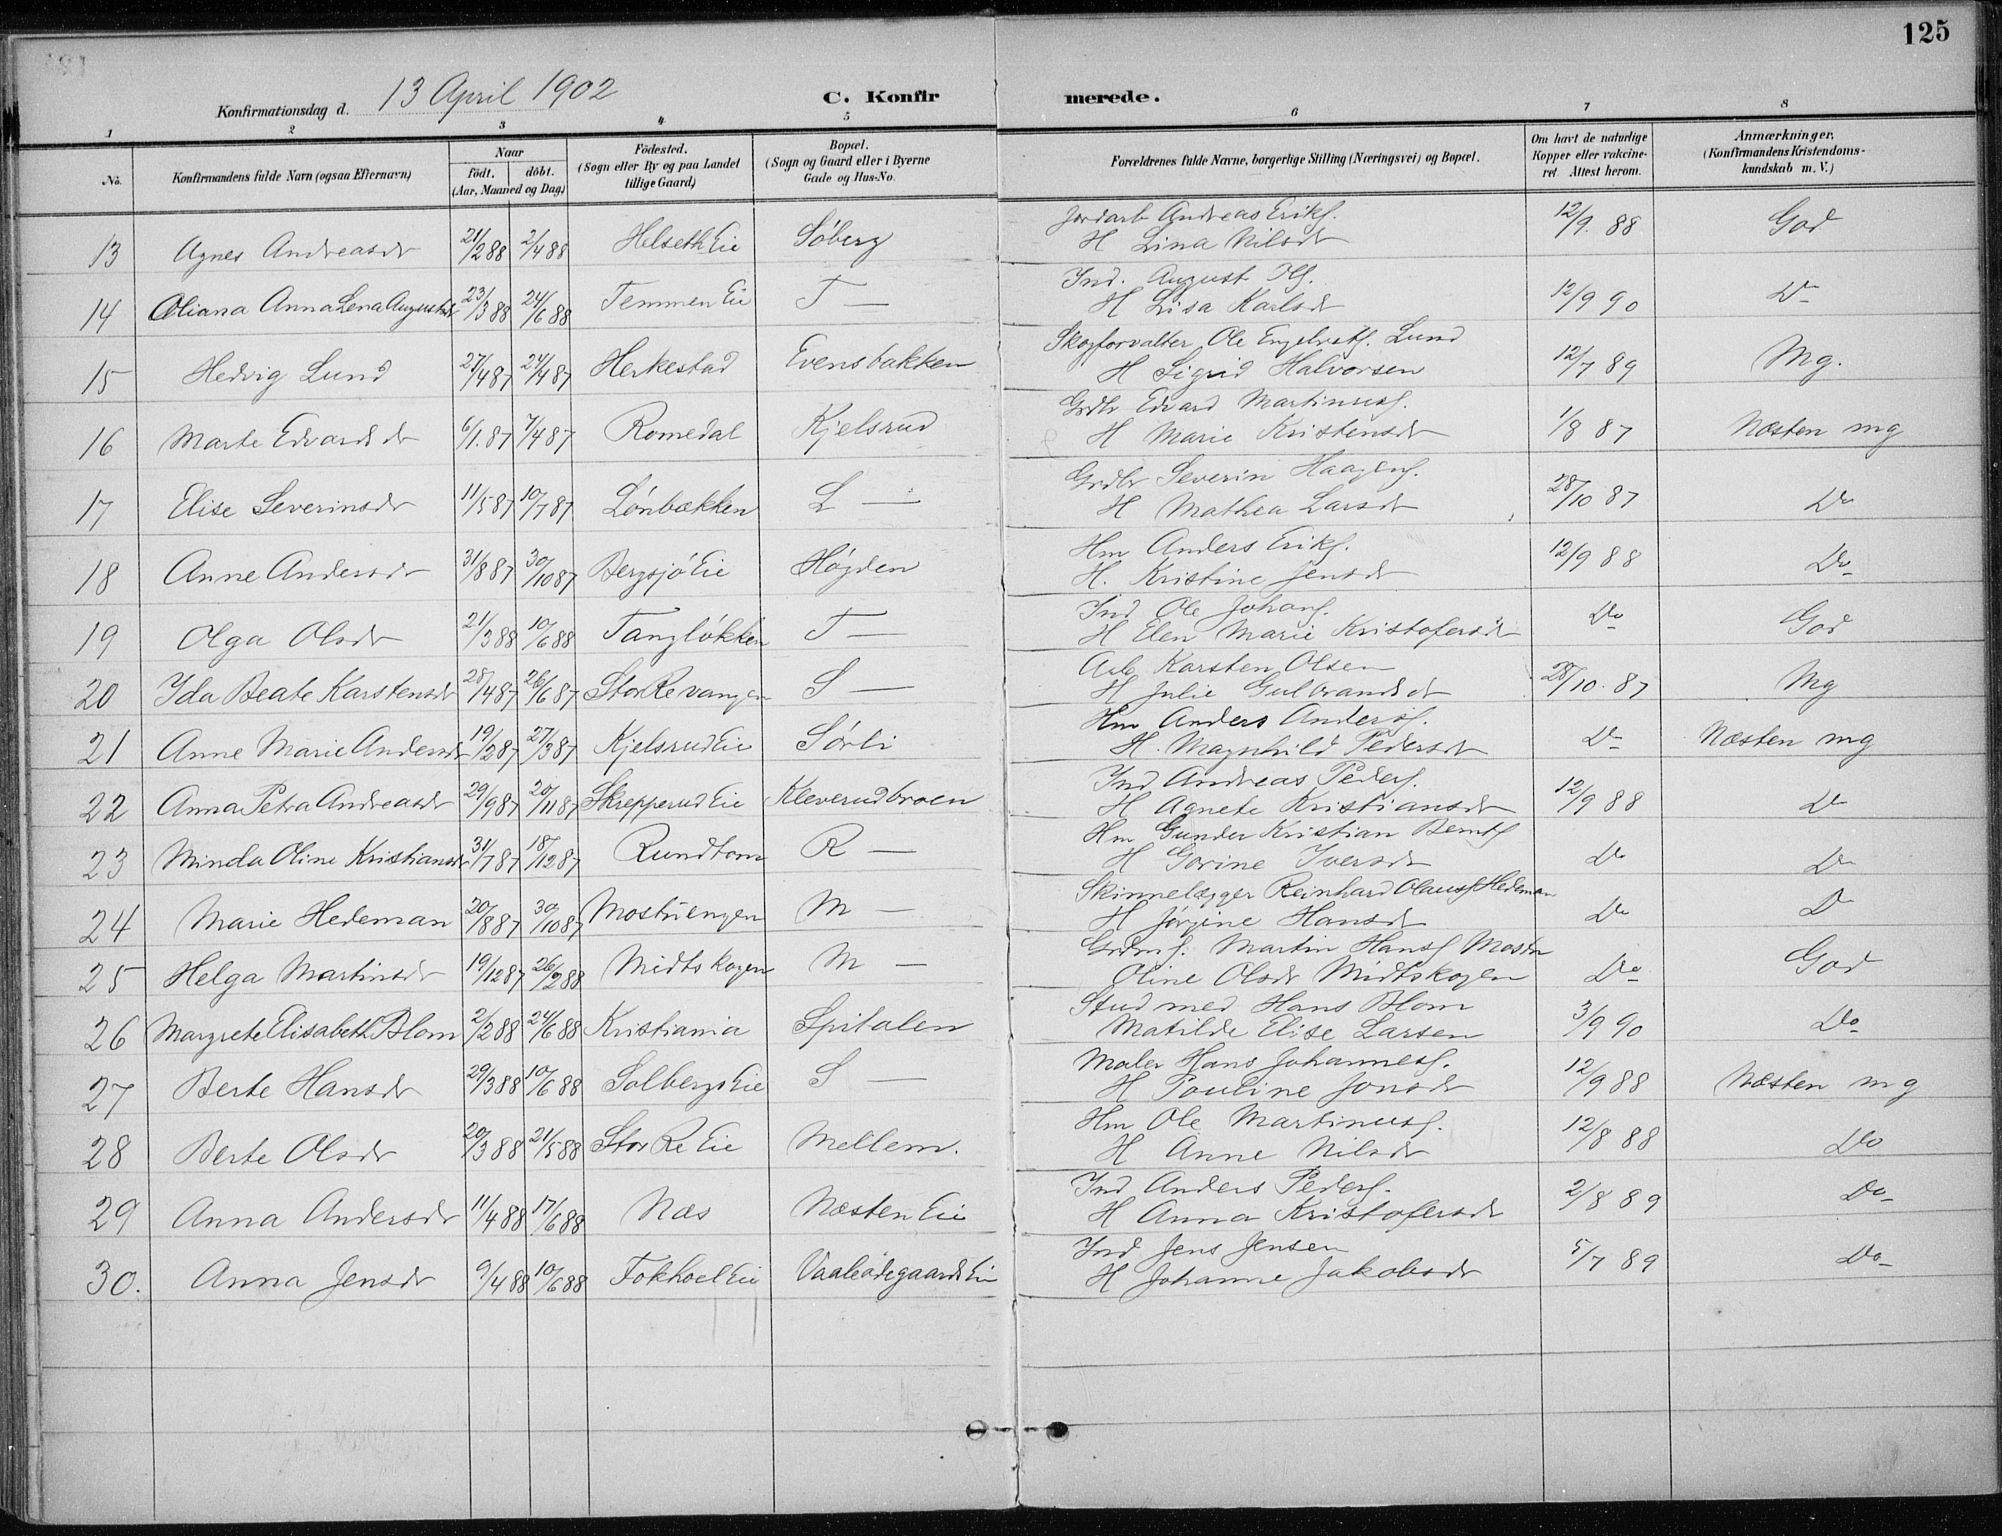 125
Konfirmationsdag d. 13 April 1902
C. Konfirmerede.
1 2 3 4 5 6 7 8
No. Konfirmandens fulde Navn (ogsaa Efternavn) Naar födt. döbt. (Aar, Maaned og Dag) Födested. (Sogn eller By og paa Landet tillige Gaard) Bopæl. (Sogn og Gaard eller i Byerne Gade og Hus-No. Forældrenes fulde Navne, borgerlige Stilling (Næringsvei) og Bopæl. Om havt de naturlige Kopper eller vakcineret Attest herom. Anmærkninger. (Konfirmandens Kristendomskundskab m. V.)
13 Agnes Andreasdr 21/2 88 2/4 88 Helseth Eie Söberg Jordarb Andreas Eriks. 12/9. 88 God
H Lina Nilsdr
14 Oliana Anna Lena Augustsdr 23/3 88 24/6 88 Temmen Eie T — Ind. August Ols. 12/9 90 Do
H Lisa Karlsdr
15 Hedvig Lund 27/4 87 24/4 87 Herkestad Evensbakken Skogforvalter Ole Engelrets. Lund 12/7 89 Mg.
H Sigrid Halvorsen
16 Marte Edvardsdr 6/1. 87 7/4 87 Romedal Kjelsrud Grdbr Edvard Martinuss. 1/8 87 Næsten mg
H Marie Kristensdr
17 Elise Severinsdr 11/5 87 10/7 87 Lönbækken L — Grdbr Severin Haagens. 28/10 87 Do
H Mathea Larsdr
18 Anne Andersdr 31/8 87 30/10 87 Bergsjö Eie Högden Hm Anders Eriks. 12/9 88 Do
H. Kristine Jensdr
19 Olga Olsdr 21/3 88 10/6 88 Tanglökken T — Ind Ole Johans. Do God
H Elen Marie Kristofersdr
20 Ida Beate Karstensdr 28/4 87 26/6 87 Stor Revangen S — Arb Karsten Olsen 28/10. 87 Mg
H Julie Gulbrandsdr
21 Anne Marie Andersdr 19/2 87 27/3 87 Kjelsrud Eie Sörli Hm Anders Anders. Do Næsten mg
H. Magnhild Pedersdr
22 Anna Petra Andreasdr 29/9 87 20/11 87 Skrepperud Eie Kleverudbroen Ind Andreas Peders. 12/9 88 Do
H Agnete Kristiansdr
23 Minda Oline Kristiansdr 31/7 87 18/12 87 Rundtom R — Hm Gunder Kristian Bernts Do Do
H Gorine Iversdr
24 Marie Hedeman 20/8 87 30/10 87 Mostuengen M — Skinnelægger Reinhard Olaus Hedeman Do Do
H Jörgine Hansdr
25 Helga Martinsdr 19/12 87 26/2 88 Midtskogen M — Grdms. Martin Hans Do God
Oline Olsdr Midtskogen
26 Margrete Elisabeth Blom 2/2 88 24/6 88 Kristiania Spitalen Stud med Hans Blom 3/9 90 Do
Matilde Elise Larsen
27 Berte Hansdr 29/3 88 10/6 88 Solbergs Eie S — Maler Hans Johannes. 12/9 88 Næsten mg
H Pouline Jonsdr
28 Berte Olsdr 20/3 88 21/5 88 Stor Re Eie Mellem. Hm Ole Martinuss. 12/8 88 Do
H Anne Nilsdr
29 Anna Andersdr 11/4 88 17/6 88 Næs Næsten Eie Ind Anders Peders. 2/8 89 Do
H Anna Kristofersdr
30. Anna Jensdr 9/4 88 10/6 88 Fokhoel Eie Vaaleödegaards Eie Ind Jens Jensen 5/7 89 Do
H Johanne Jakobsdr